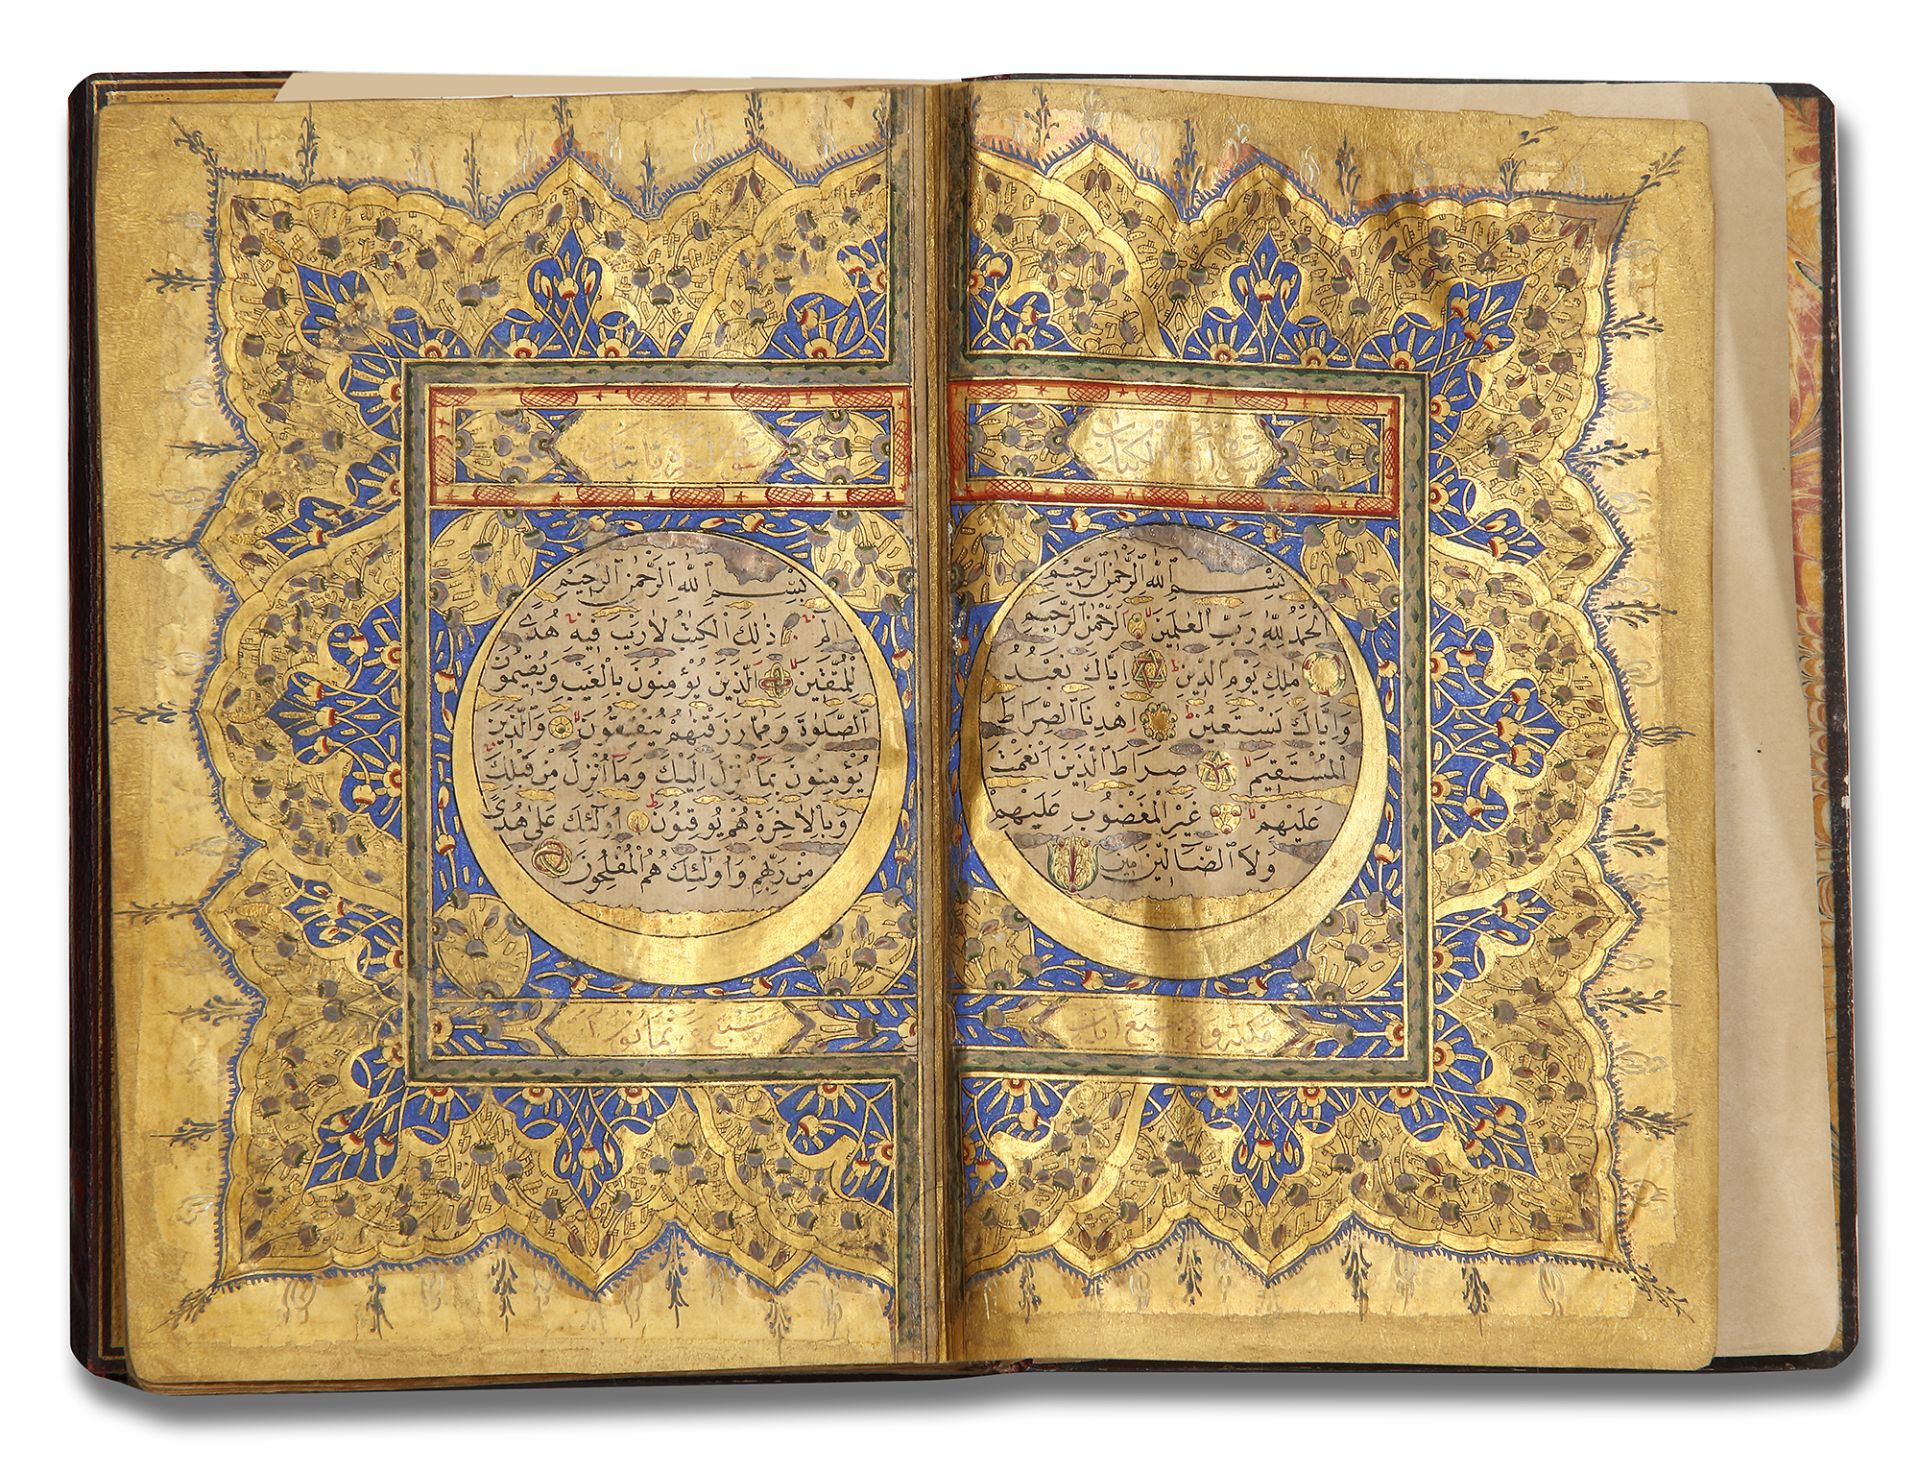 سورة فاتحة الكتاب
بسم الله الرحمن الرحيم
الحمد لله رب العلمين الرحمن الرحيم
ملك يوم الدين اياك نعبد
واياك نستعين اهدنا الصراط
المستقيم صراط الذين انعمت
عليهم غير المغضوب عليهم
ولا الضالين امين
مكية وهي سبع ايات
بسم الله الرحمن الرحيم
الم ذلك الكتب لا ريب فيه هدى
للمتقين الذين يؤمنون بالغيب ويقيمون
الصلوة ومما رزقنهم ينفقون والذين
يؤمنون بما انزل اليك وما انزل من قبلك
وبالاخرة هم يوقنون اولئك على هدى
من ربهم واولئك هم المفلحون